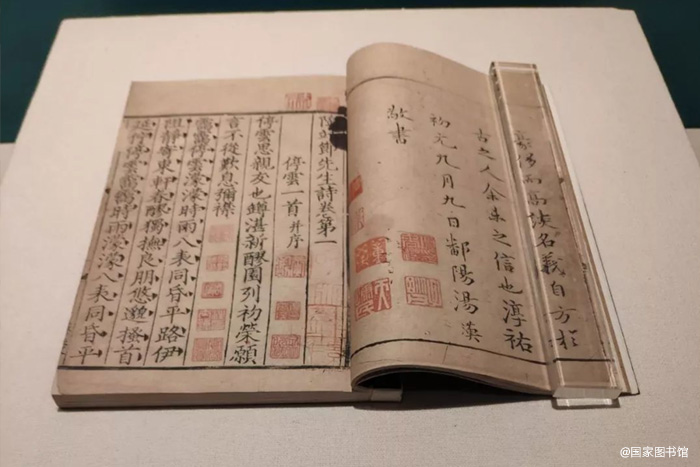 豪傑而高談名義自方於
古之人余未之信也淳祐
初元九月九日鄱陽湯漢
敬書
陶靖節先生詩卷第一
停雲一首并序
停雲思親友也罇湛新醪園列初榮願
言不從歎息彌襟
靄靄停雲濛濛時雨八表同昏平路伊
阻靜寄東軒春醪獨撫良朋悠邈搔首
延佇停雲靄靄時雨濛濛八表同昏平
@国家图书馆